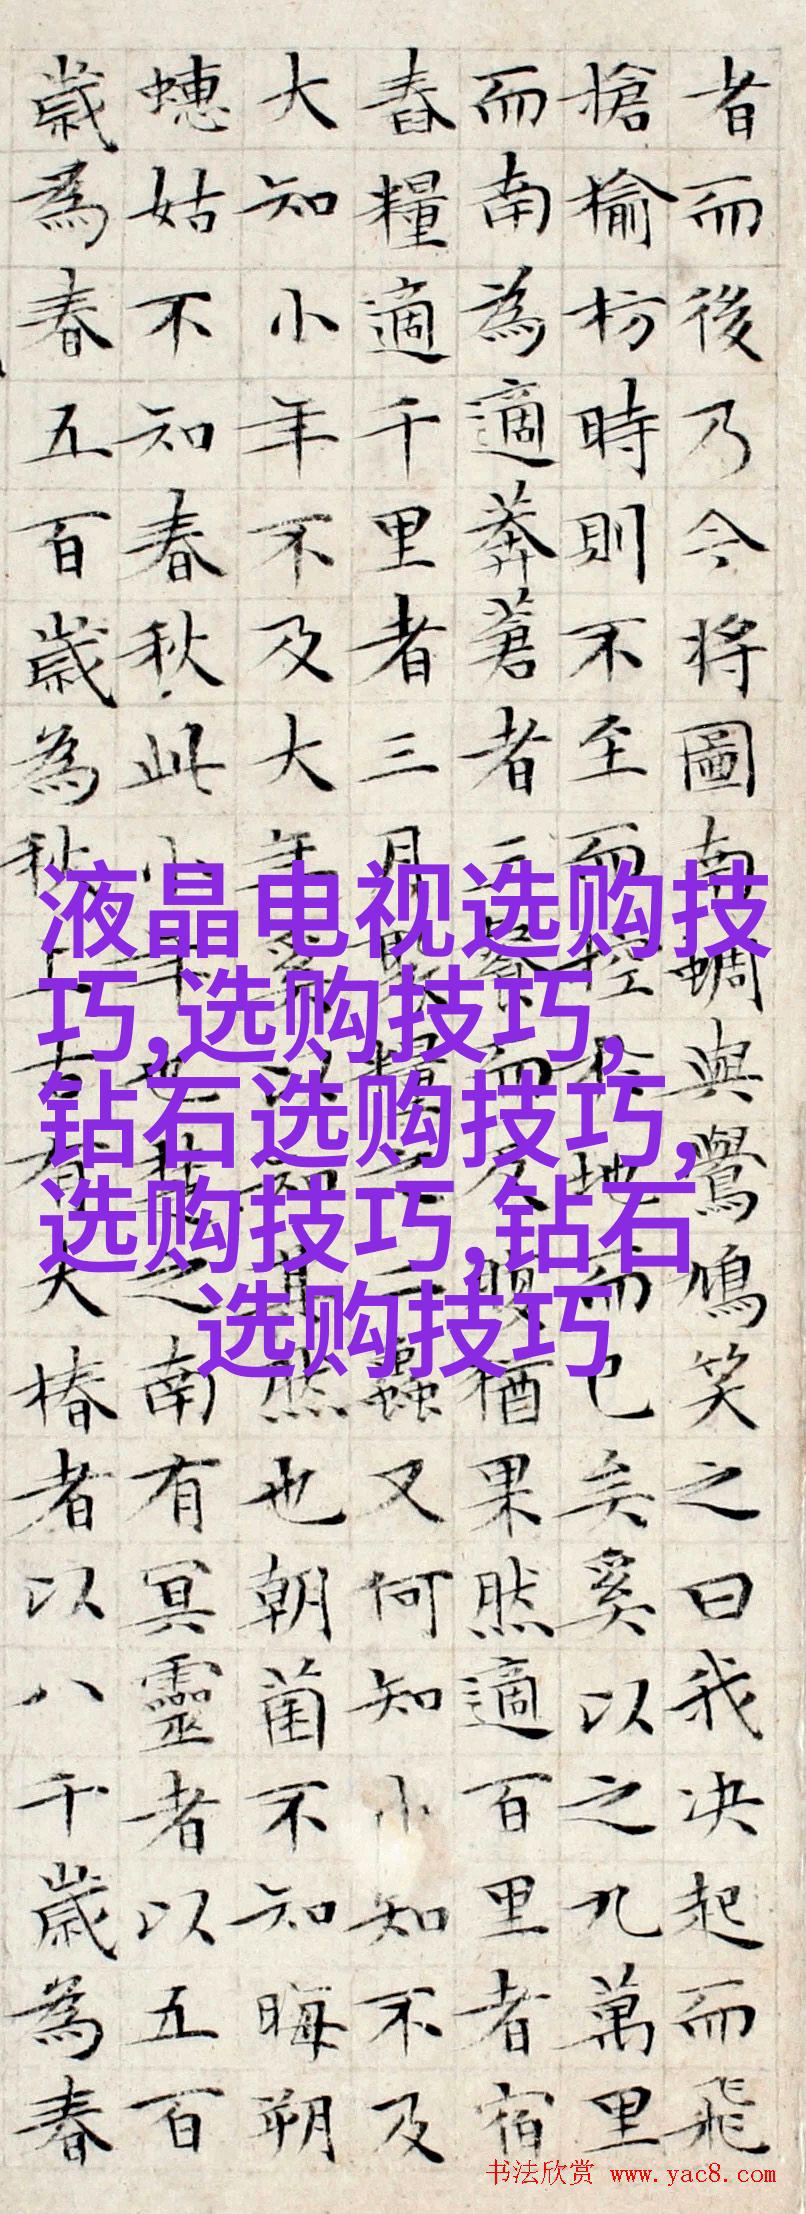 者而後乃今将圖南蜩與鷽鳩笑之曰我决起而飛
搶榆枋時則不至而控於地而已矣奚以之九萬里
而南為適莽蒼者三飡而反腹猶果然適百里者宿
舂糧適千里者三月聚糧之二蟲又何知小知不及
大知小年不及大年奚以知其然也朝菌不知晦朔
蟪姑不知春秋此小年也楚之南有冥靈者以五百
歲為春五百歲為秋上古有大椿者以八千歲為春
液晶电视选购技
巧,选购技巧,
钻石选购技巧,
选购技巧,钻石
选购技巧
书法欣赏 www.yac8.com